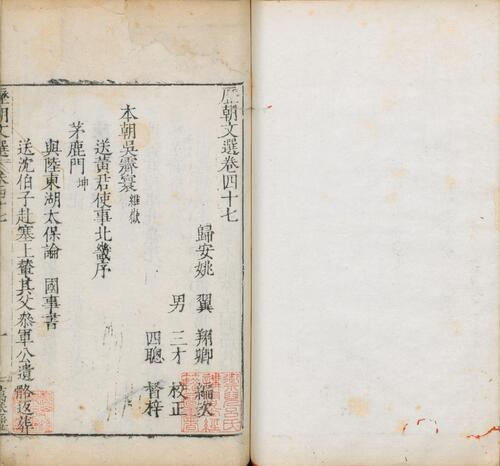 歷朝文選卷四十七
歸安姚 翼 翔卿 編次
男 三才 校正
四聰 督梓
本朝吳霽寰 維嶽
送黃君使事北畿序
茅鹿門 坤
與陸東湖太保論 國事書
送沈伯子赴塞上蒐其父叅軍公遺骼返葬
歷朝文選